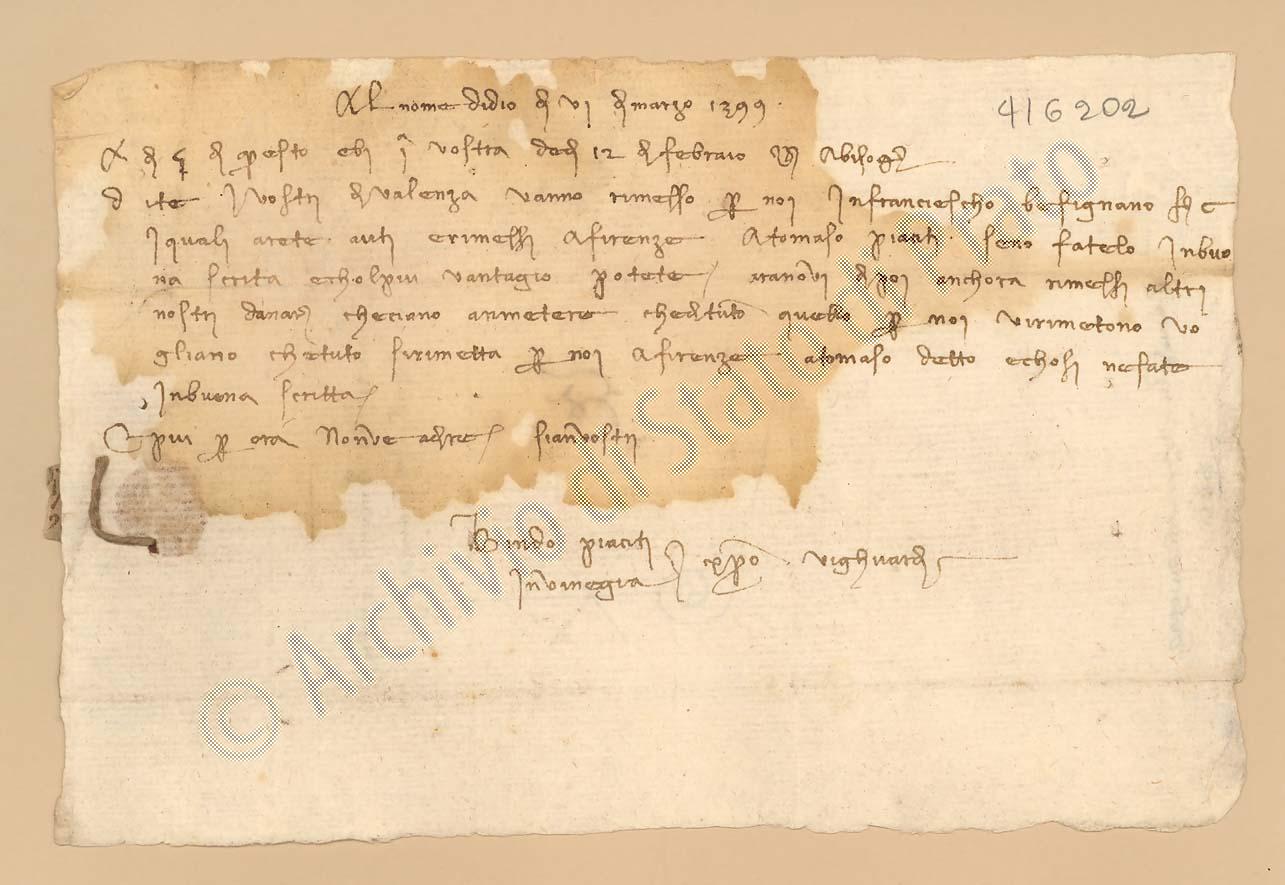 Al nome di dio di VI di marzo 1399
416202
A di 5 di questo ebi 1ª vostra dedi 12 di febraio
dite i vostri di valenza vanno rimesso per noi in franciescho besignano
i quali arete auti e rimessi a firenze a tomaso piaciti se no fatelo in buo
na scrita e chol piu vantagio potete aranovi di poi anchora rimessi altri
nostri danari che ciano a rimetere che di tuto quello per noi vi rimetono vo
gliano che tuto si rimetta per noi a firenze a tomaso detto e chosi ne fate
in buona scritta
E piu per ora non v'e a dire sian vostri
Bindo piaciti
in vinegia
xpo vi ghuardi
© Archivio di Stato di Prato